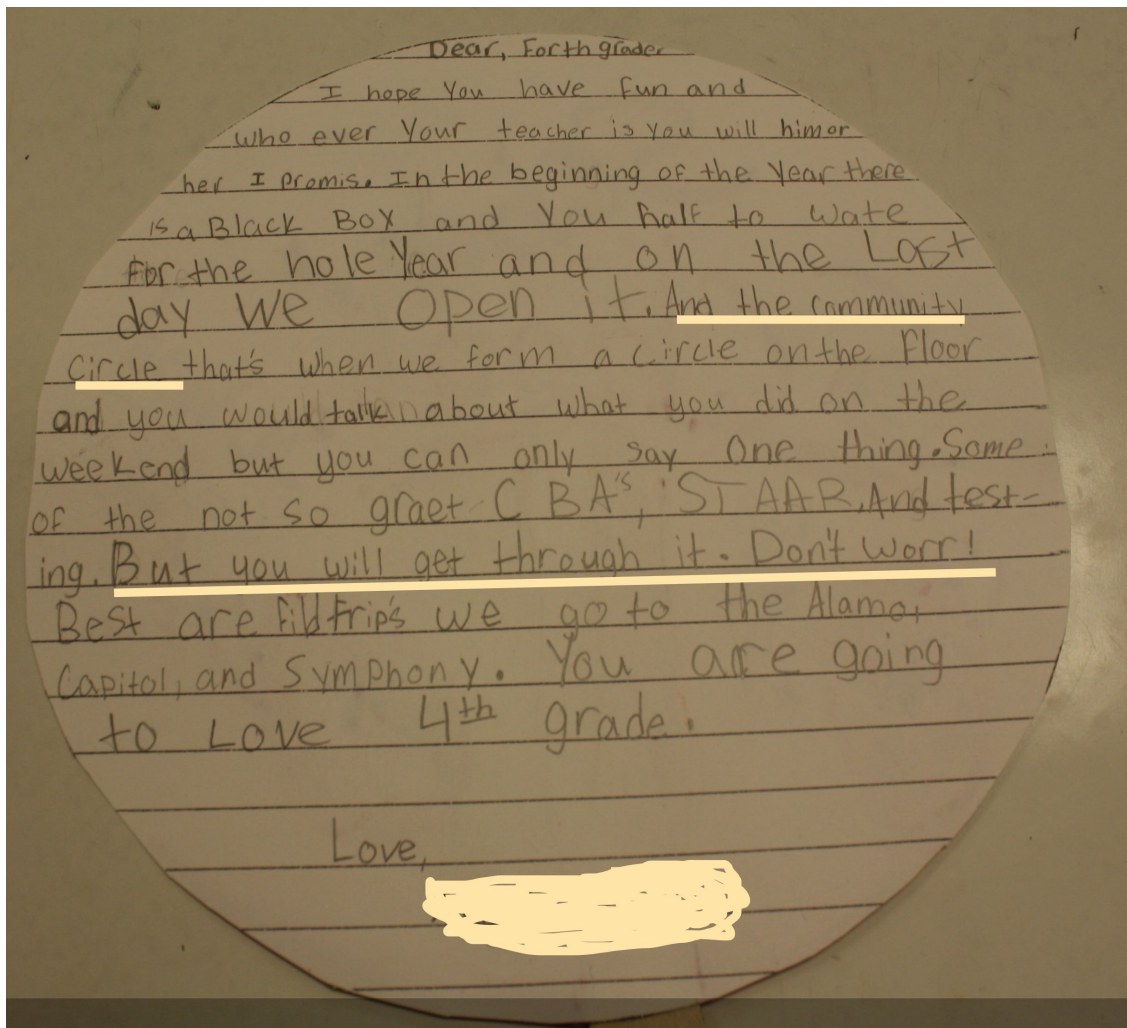 Dear, Forth grader
I hope You have fun and
who ever Your teacher is You will him or
her I promis. In the beginning of the Year there
is a Black Box and You half to wate
For the hole Year and on the Last
day We open it. And the community
Circle that's when we form a circle on the Floor
and you would talk about what you did on the
weekend but you can only say one thing. Some
of the not so graet CBA's, STAAR. And test-
ing. But you will get through it. Don't worr!
Best are fildtrip's we go to the Alamo,
Capitol, and Symphony. You are going
to Love 4th grade.
Love,